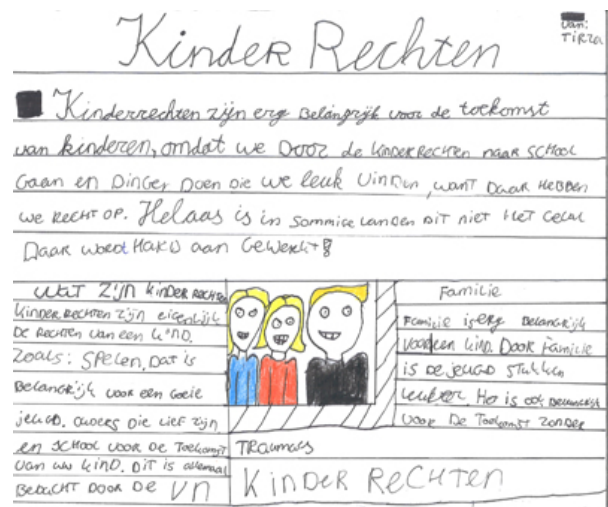 Kinder Rechten
van:
TiRZa
Kinderrechten zijn erg Belangrijk voor de toekomst
van kinderen, omdat we Door de kinderRechten naar school
Gaan en Dinger Doen die we leuk Vinden, want Daar HeBBen
we Recht op. Helaas is in sommige landen Dit niet Het Geval
Daar word Hard aan Gewerkt!
Wat zijn kinder Rechten
kinderRechten zijn eigenlijk
De Rechten van een kind.
Zoals: spelen, Dat is
Belangrijk voor een Goeie
jeugd. ouders Die lief zijn
en school voor De Toekomst
van uw kind. Dit is allemaal
BeDacht Door De VN
Familie
Familie is erg Belangrijk
voor een kind. Door Familie
is De jeugd stukken
leuker. Ho is ook Belangrijk
voor De Toekomst zonder
TRaumas
KinDer ReCHTen